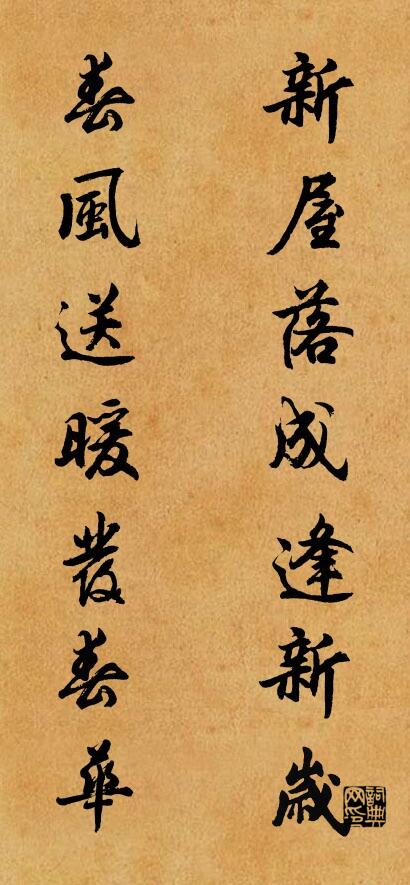 新屋落成逢新歲
春風送暖發春華
詞典网印